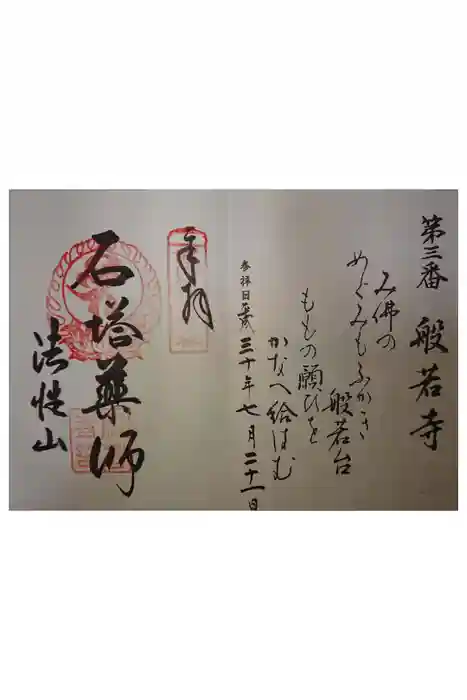 第三番 般若寺
み佛の
めぐみもふかき
般若台
もゝの願ひを
かなへ給はむ
参拝日 平成三十年七月二十一日
奉拝
石塔薬師
法性山